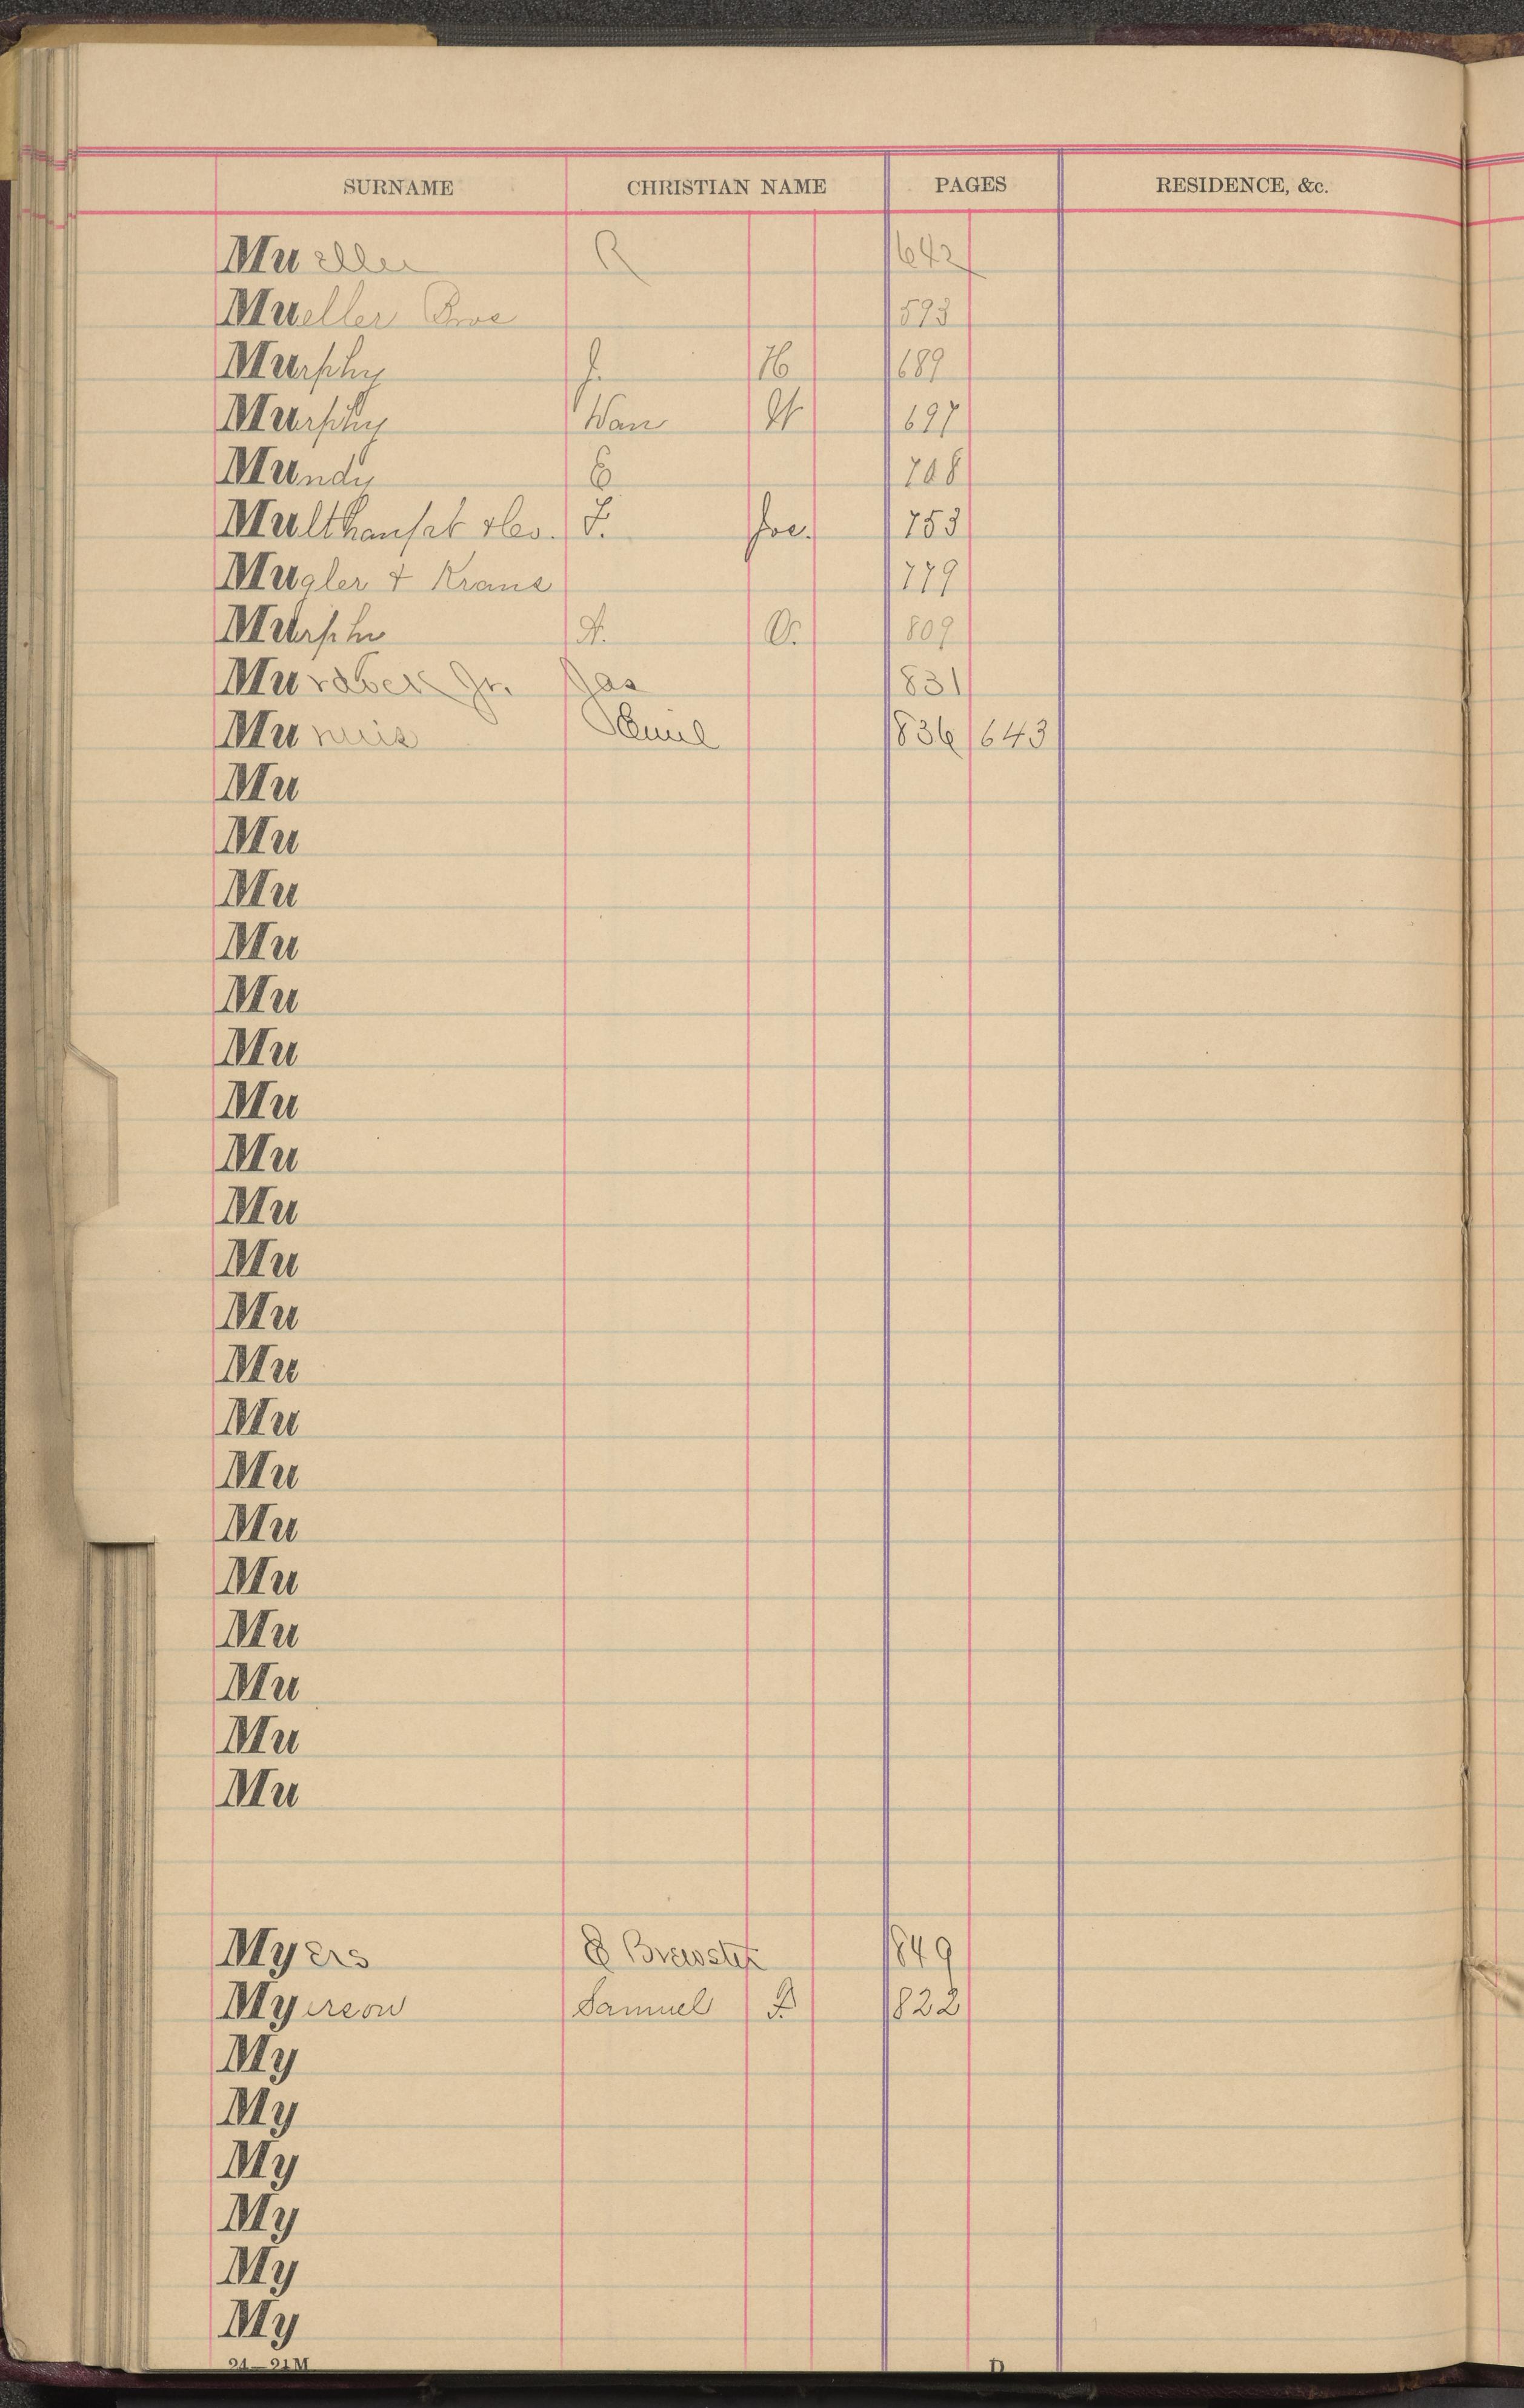 SURNAME CHRISTIAN NAME PAGES RESIDENCE, &c.
Mueller R 642
Mueller Bros 593
Murphy J. H 689
Murphy Wan W 697
Mundy E 708
Multhaufat &Co. F. Joe. 753
Mugler & Krans 779
Murphy A. O. 809
Murdock Jr. Jas 831
Munnis Emil 836 643
Mu
Mu
Mu
Mu
Mu
Mu
Mu
Mu
Mu
Mu
Mu
Mu
Mu
Mu
Mu
Mu
Mu
Mu
Mu
Mu
Myers E Brewster 849
Myerson Samuel F. 822
My
My
My
My
My
My
24—21M D